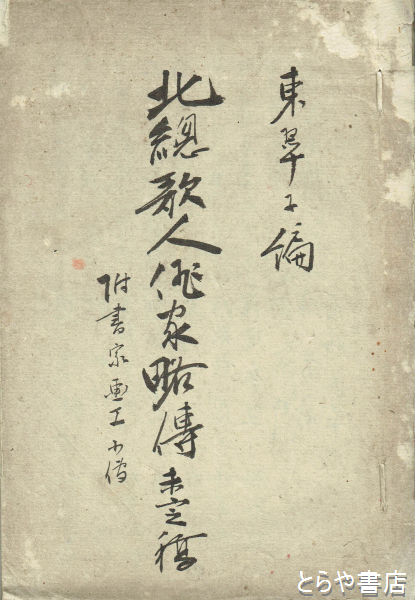 東翠子編
北總歌人俳家略傳未定稿
附書家画工小傳
とらや書店